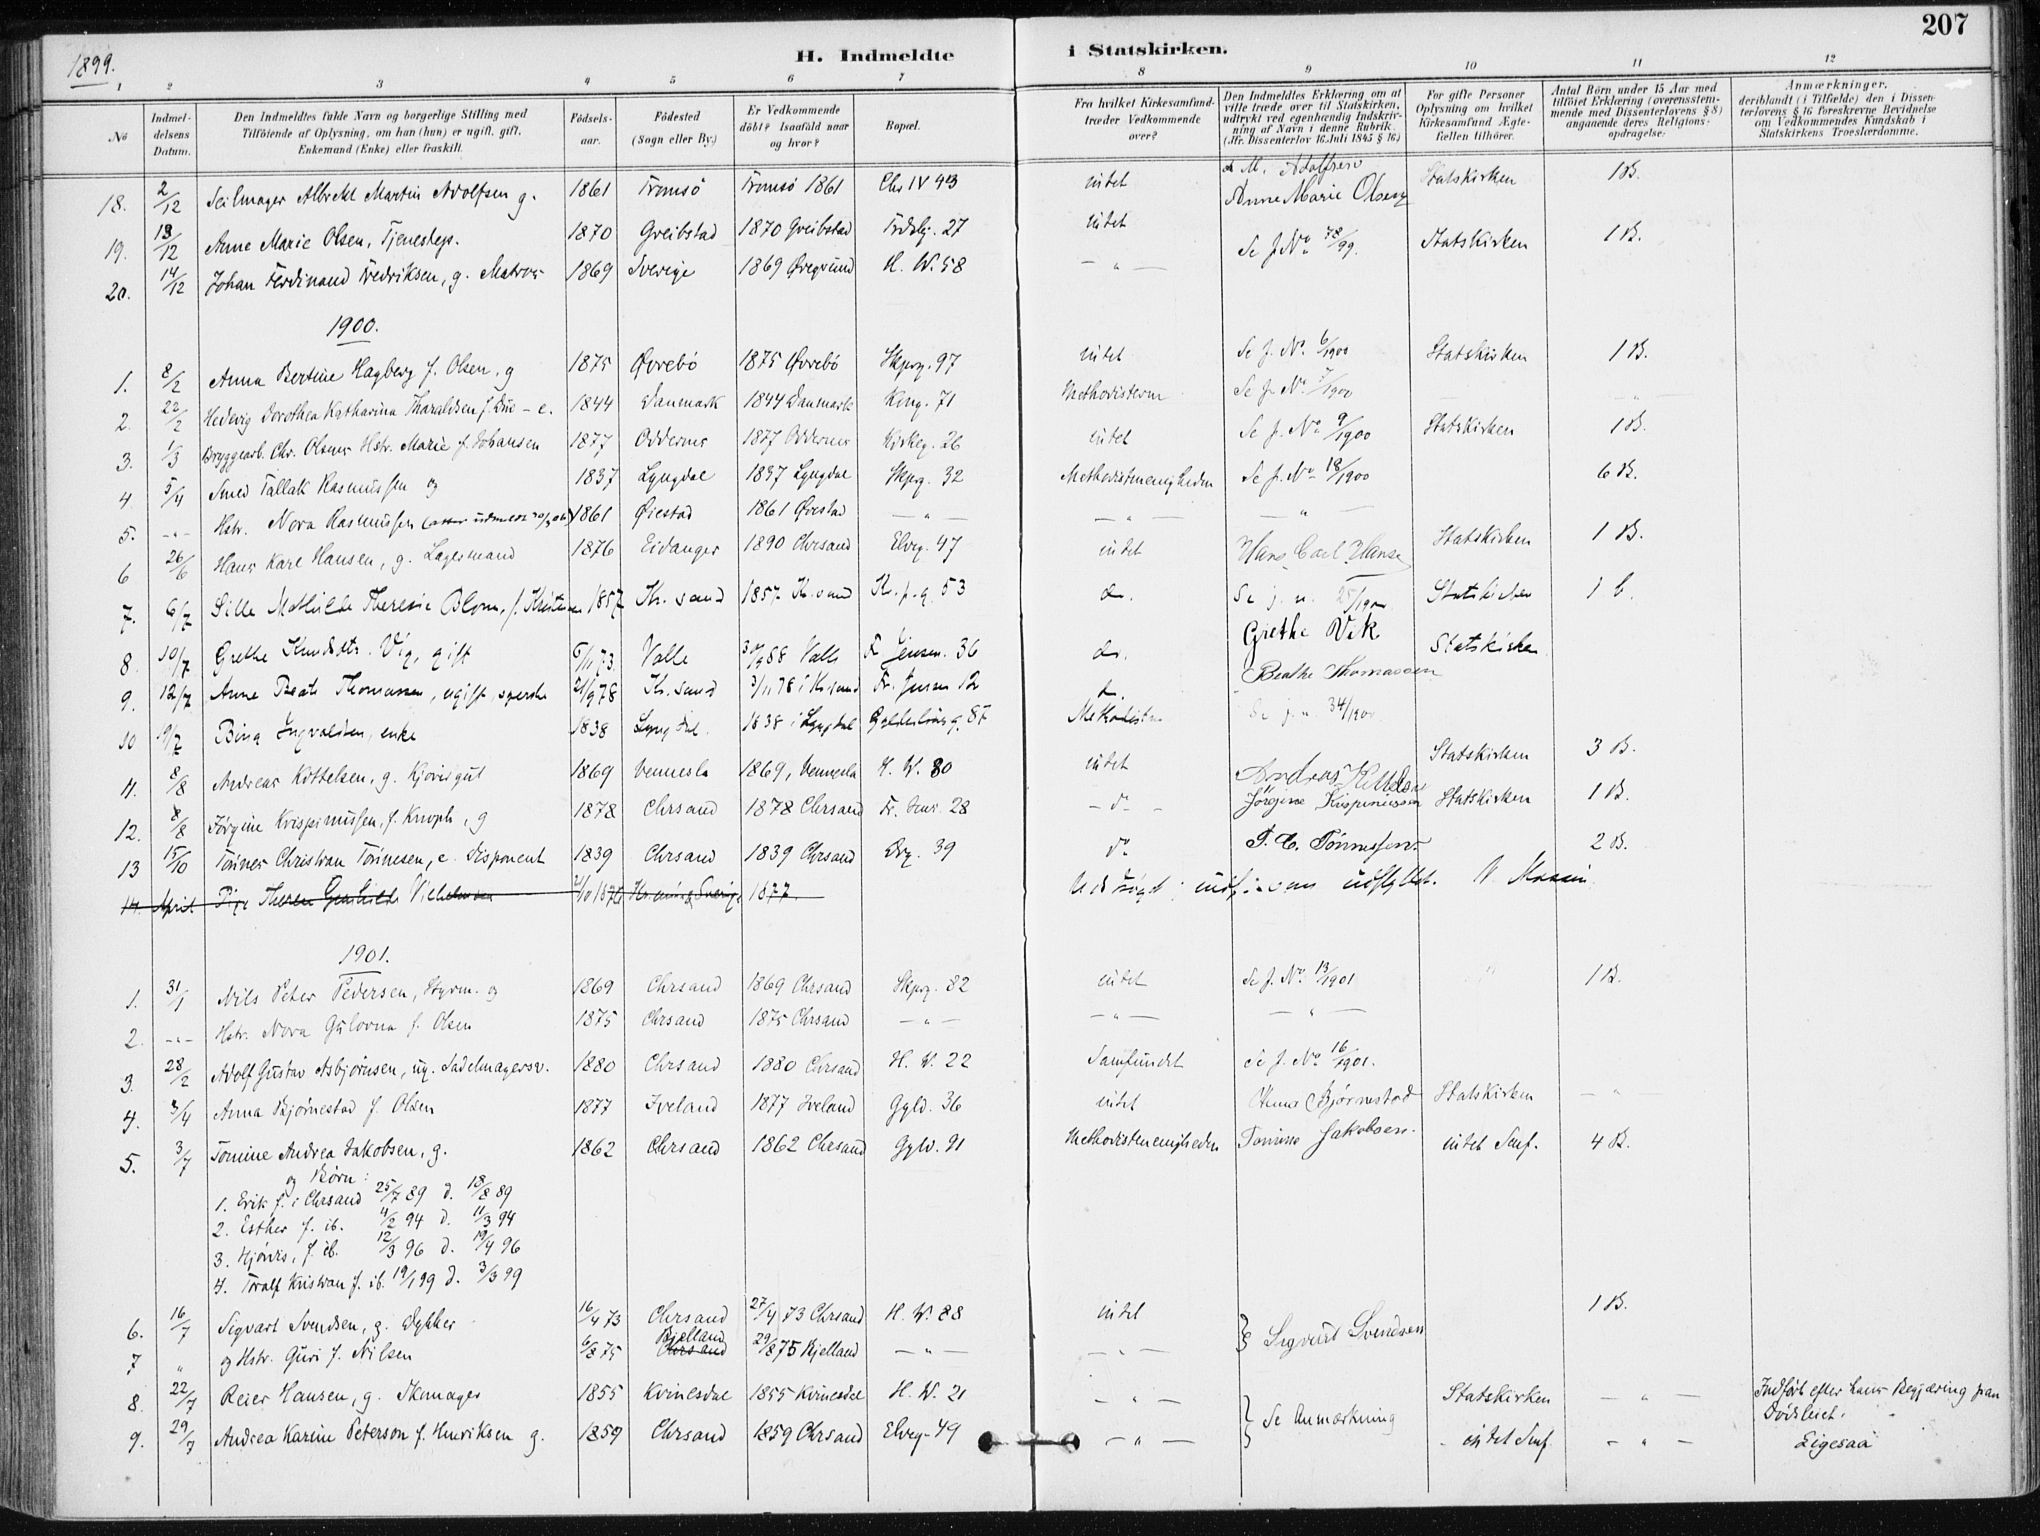 207
1899.
H. Indmeldte i Statskirken.
1 2 3 4 5 6 7 8 9 10 11 12
No
Indmel-
delsens
Datum.
Den Indmeldtes fulde Navn og borgerlige Stilling med
Tilföiende af Oplysning, om han (hun) er ugift, gift,
Enkemand (Enke) eller fraskilt.
Födsels-
aar.
Födested
(Sogn eller By.)
Er Vedkommende
döbt? Isaafald naar
og hvor?
Bopæl.
Fra hvilket Kirkesamfund
træder Vedkommende
over?
Den Indmeldtes Erklæring om at
ville træde over til Statskirken,
udtrykt ved egenhændig Indskriv-
ning af Navn i denne Rubrik.
(Jfr. Dissenterlov 16 Juli 1845 § 16.)
For gifte Personer
Oplysning om hvilket
Kirkesamfund Ægte-
fællen tilhörer.
Antal Börn under 15 Aar med
tilföiet Erklæring (overensstem-
mende med Dissenterlovens § 8)
angaaende deres Religions-
opdragelse.
Anmærkninger,
deriblandt (i Tilfælde) den i Dissen-
terlovens § 16 foreskrevne Bevidnelse
om Vedkommendes Kundskab i
Statskirkens Troeslærdomme.
18. 2/12 Seilmager Albrekt Martin Adolfsen g. 1861 Tromsö Tromsö 1861 Chr IV 43 intet A M. Adolfsen Statskirken 1 B.
19. 13/12 Anne Marie Olsen, Tjenestep. 1870 Greibstad 1870 Greibstad 27 intet Anne Marie Olsen
20. 14/12 Johan Ferdinand Fredriksen, g. Matros 1869 Sverige 1869 Øregrund H. W. 58 — " — Se J. No 78/99. Statskirken 1 B.
1900.
1. 8/2 Anna Bertine Hagberg f. Olsen, g 1875 Øvrebö 1875 Øvrebö Skprg. 97 intet Se J. No 6/1900 Statskirken 1 B.
2. 22/2 Hedvig Dorothea Katharina Tharaldsen f. Due - e. 1844 Danmark 1844 Danmark Kong. 71 Methodisterne Se J. No 7/1900 — — " —
3. 1/3 Bryggearb. Chr. Olsens Hstr. Marie f. Johansen 1877 Oddernes 1877 Oddernes Kirkeg. 26 intet Se J. No 9/1900 Statskirken 1 B.
4 5/4 Smed Tallak Rasmussen og 1837 Lyngdal 1837 Lyngdal Skprg. 32 Methodistmenigheden Se J. No 18/1900 6 B.
5. -"- Hstr. Nora Rasmussen 1861 Øiestad 1861 Øiestad — " — — " — — " —
6 26/6 Hans Karl Hansen, g. Lagermand 1876 Eidanger 1890 Chrsand Elveg. 47 intet Hans Carl Hansen Statskirken 1 B.
7. 6/7 Sille Mathilde Theresie Blom, f. 1857 Kr. sand 1857 Kr. sand 53 do. Se j. n. 25/1900 Statskirken 1 b.
8. 10/7 Grethe Knudsdtr. Vig, gift 5/11 73. Valle 30/9 88 Valle Fr. Jensen. 36 do. Grethe Vik Statskirken
9. 12/7 Anne Beate Thomassen, ugift, syerske 21/9 78 Kr. sand 3/11 78 i Kr.sand Fr. Jensen 12 d. Beathe Thomassen
10 19/7 Bina Ingvaldsen, enke 1838 Lyngdal. 1838 i Lyngdal Gyldenlöves g. 87 Methodistm Se j. n. 34/1900
11. 8/8 Andreas Kittelsen, g. 1869 Vennesla 1869, Vennesla H. W. 80 intet Andreas Kittelsen Statskirken 3 B.
12. 8/8 Jörgine Krispinussen, f. Knoph, g 1878 Chrsand 1878 Chrsand Fr. Jens. 28 - do - Jörgine Krispinussen Statskirken 1 B.
13 15/10 Tönnes Christian Tönnesen, e. Disponent 1839 Chrsand 1839 Chrsand Drg. 39 do T. C. Tönnessen 2 B.
14. April Pige Therese Vilhelmsen 1877
1901.
1. 31/1 Nils Peter Pedersen, Styrm. og 1869 Chrsand 1869 Chrsand Skprg. 82 intet Se J. No 13/1901 " 1 B.
2. -"- Hstr. Nora Gulovna f. Olsen 1875 Chrsand 1875 Chrsand — " — — " — — " —
3. 28/2 Adolf Gustav Asbjörnsen, ug. Sadelmagersv. 1880 Chrsand 1880 Chrsand H. W. 22 Samfundet Se J. No 16/1901.
4. 3/4 Anna Bjørnestad f. Olsen 1877 Iveland 1877 Iveland Gyld. 36 intet Anna Bjørnestad Statskirken — " —
5. 3/7 Tomine Andrea Jakobsen, g. 1862 Chrsand 1862 Chrsand Gyld. 91 Methodistmenigheden Tomine Jakobsen. intet Smf. 4 B.
og Börn:
1. Erik f. i Chrsand 25/7 89 d. 18/8 89
2. Esther f. ib. 4/2 94 d. 11/3 94
3. Hjördis, f. ib. 12/3 96 d. 19/4 96
4. Toralf Kristian f. ib. 19/1 99 d. 3/3 99
6. 16/7 Sigvart Svendsen, g. Dykker 16/4 73 Chrsand 27/4 73 Chrsand H. W. 88 intet Sigvart Svendsen 1 B.
7 " og Hstr. Guri f. Nilsen 6/8 75 Bjelland Chrsand 29/8 75 Bjelland — " — — " —
8. 22/7 Reier Hansen, g. Skomager 1855 Kvinesdal 1855 Kvinesdal H. W. 21 — " — Se Anmærkning Statskirken — " — Indfört efter hans Begjæring paa
Dödsleiet.
9. 29/7 Andrea Karine Peterson f. Henriksen g. 1859 Chrsand 1859 Chrsand Elveg. 49 — " — intet Smf. — " — Ligesaa